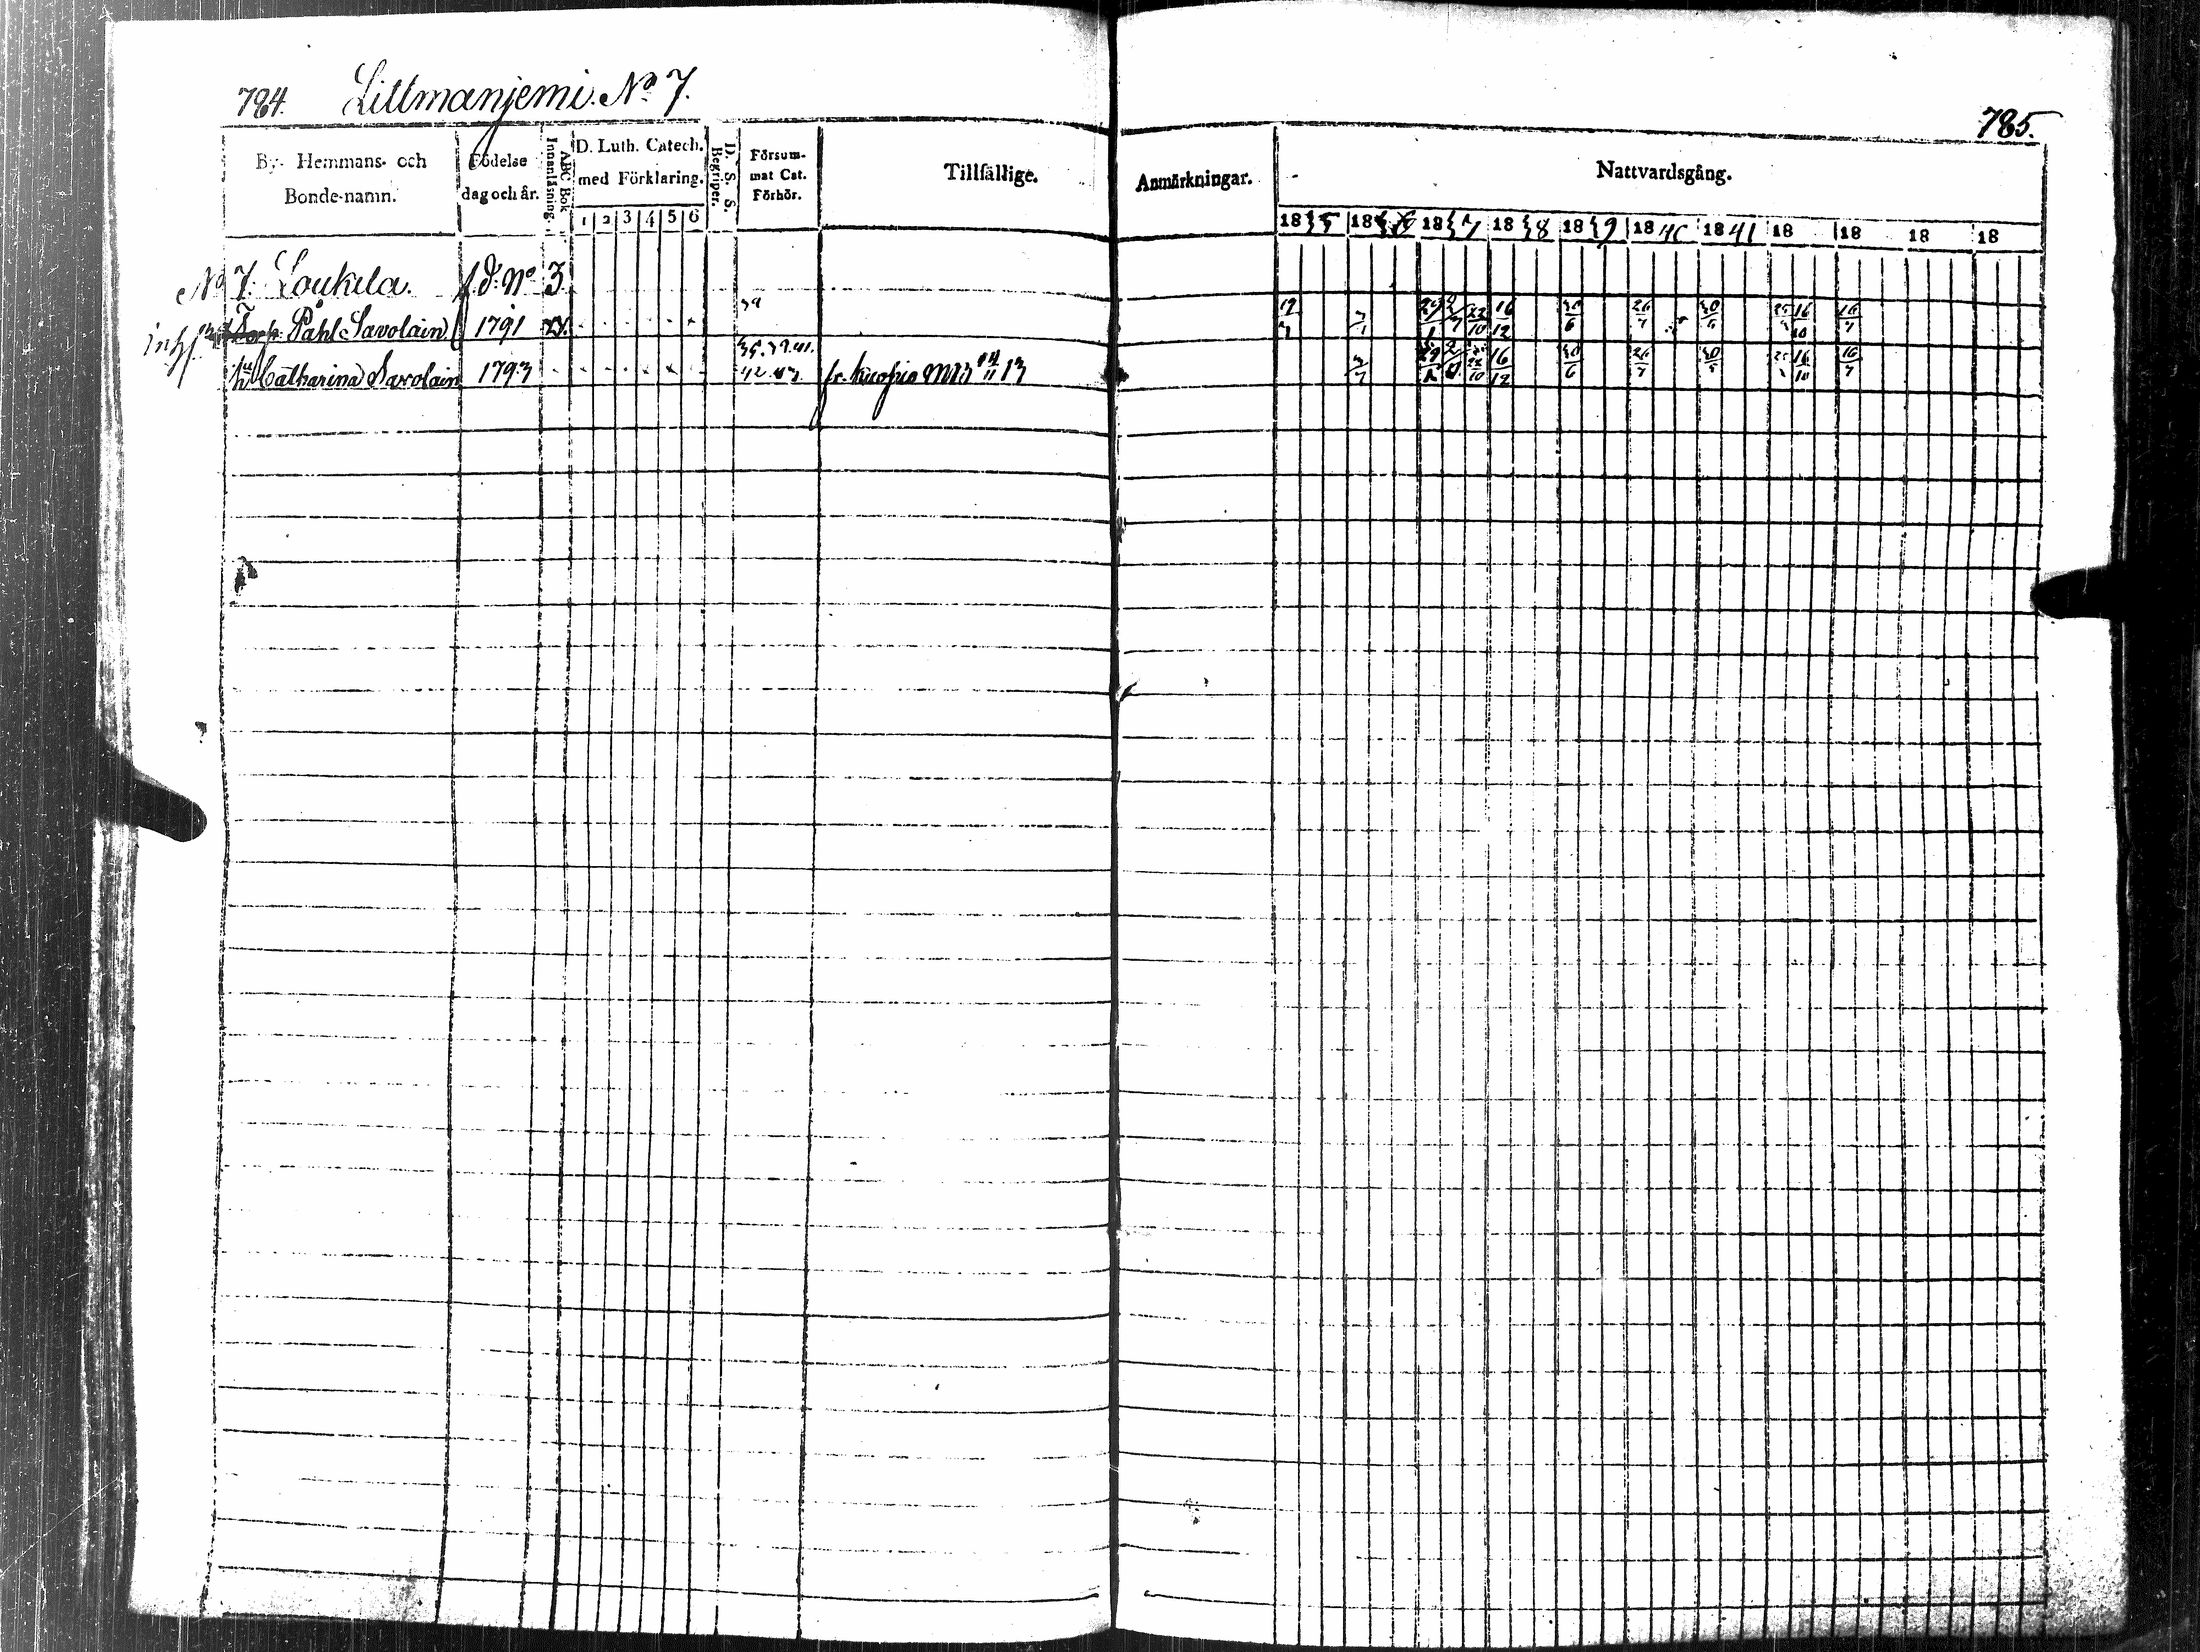 784. Littmanjemi. No 7.
785.
By- Hemmans- och Bonde-namn.
Födelse dag och år.
ABC Bok Innanläsning.
D. Luth. Catech. med Förklaring.
1 2 3 4 5 6
D. S. S. Begriper.
Försum- mat Cat. Förhör.
Tillfällige.
Anmärkningar.
Nattvardsgång.
1835 1836 1837 1838 1839 1840 1841 18 18 18 18
No 7. Loukila. f.d. No 3
Torp. Påhl Savolain 1791 39 12/7 29/1 2/7 22/10 16/12 30/6 26/7 30/6 16/10 16/7
hu Catharina Savolain 1793 35. 39. 41. 42. 43. fr. Kuopio 13 29/1 16/12 30/6 26/7 30/6 16/10 16/7